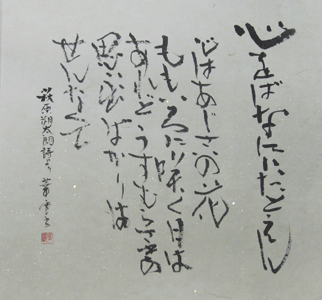 心をばなににたとへん
心はあじさゐの花
ももいろに咲く日は
あれどうすむらさきの
思い出ばかりは
せんなくて
萩原朔太郎詩より